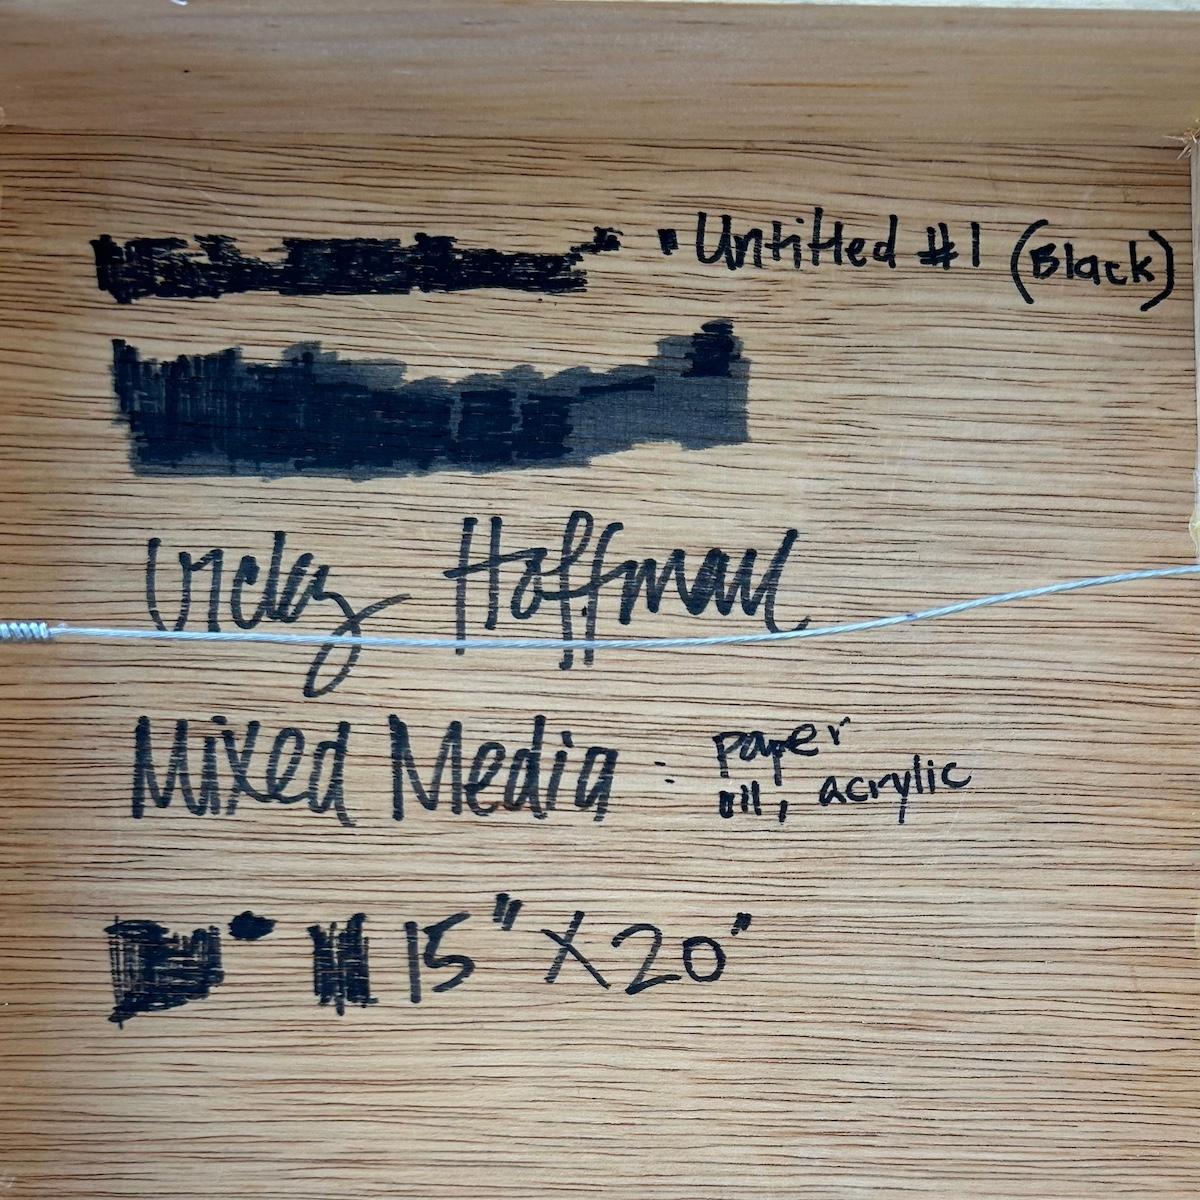 "Untitled #1 (Black)
Vicky Hoffman
Mixed Media : paper
oil, acrylic
15" X 20"